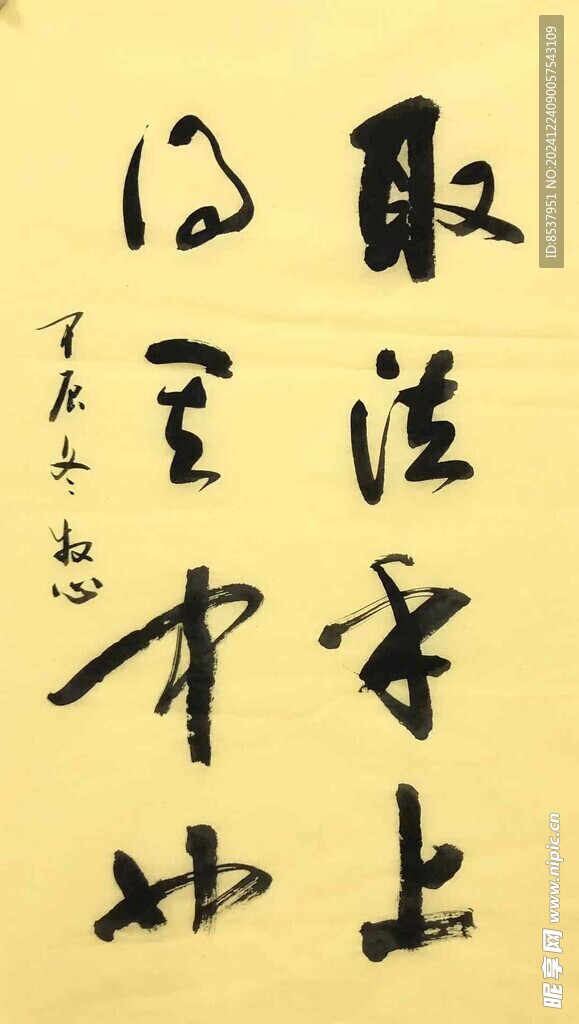 取法乎上
得其中也
甲辰冬 牧心
ID:8537951 NO:20241224090057543109
昵享网 www.nipic.cn